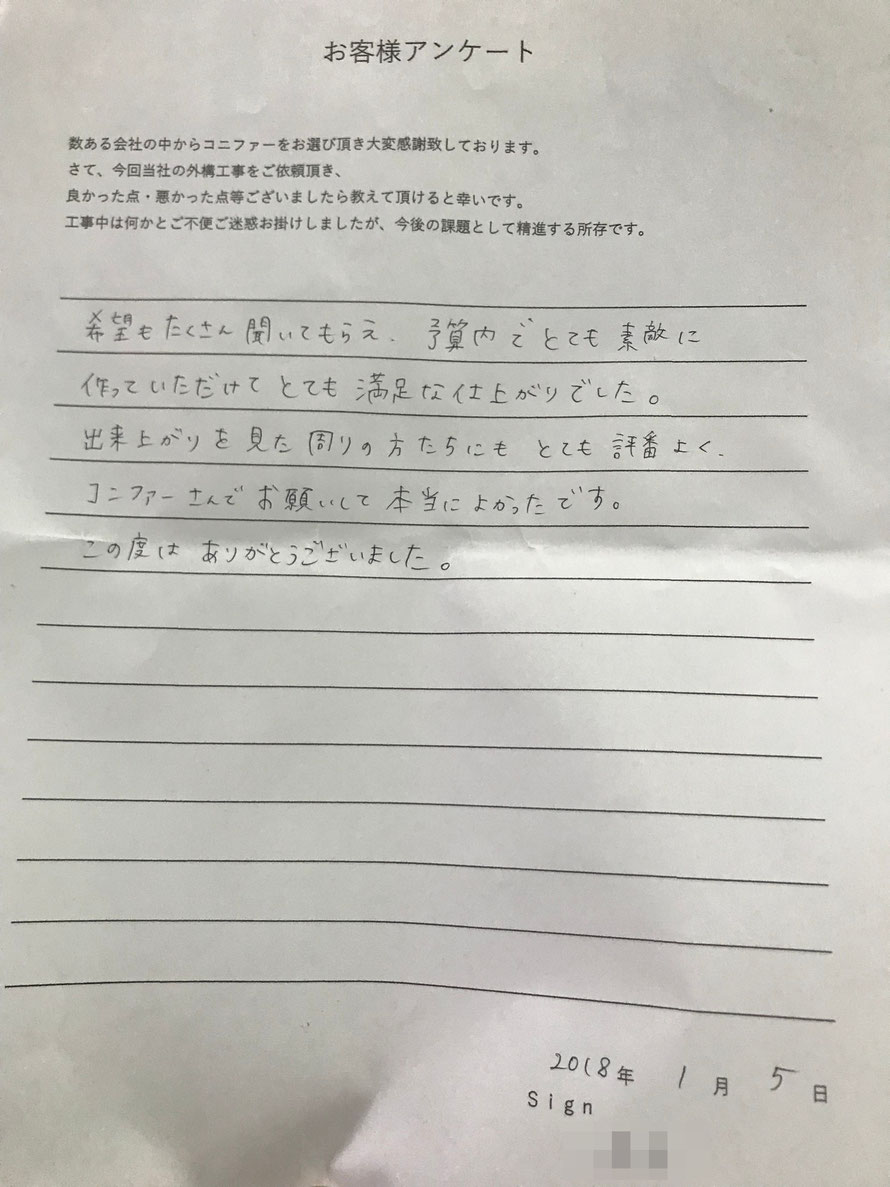 お客様アンケート
数ある会社の中からコニファーをお選び頂き大変感謝致しております。
さて、今回当社の外構工事をご依頼頂き、
良かった点・悪かった点等ございましたら教えて頂けると幸いです。
工事中は何かとご不便ご迷惑お掛けしましたが、今後の課題として精進する所存です。
希望もたくさん聞いてもらえ、予算内でとても素敵に
作っていただけてとても満足な仕上がりでした。
出来上がりを見た周りの方たちにもとても評番よく、
コニファーさんでお願いして本当によかったです。
この度はありがとうございました。
2018年 1月 5日
Sign